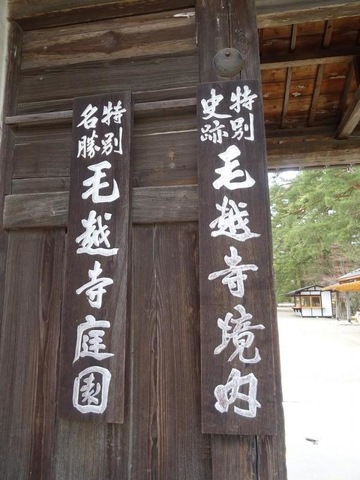 特別
史跡
毛越寺境内
特別
名勝
毛越寺庭園